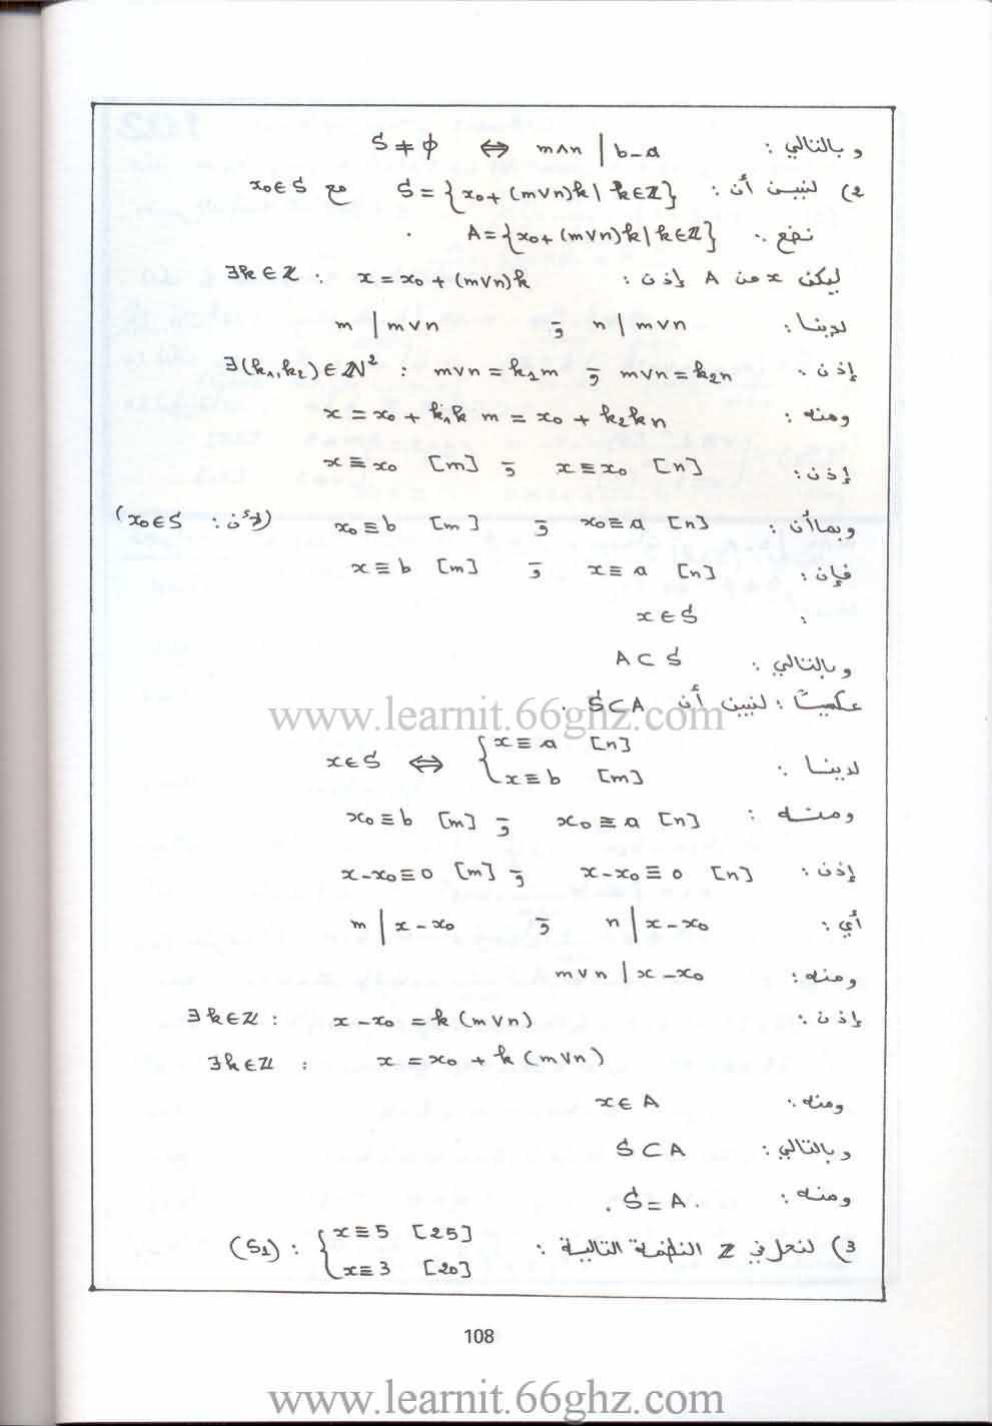 وبالتالي : S ≠ ϕ ⇔ m∧n | b-a
2) لنبين أن : S = {x₀+(m∨n)k | k∈ℤ} مع x₀∈S
نضع : A = {x₀+(m∨n)k | k∈ℤ} .
ليكن x من A إذن : ∃k∈ℤ : x = x₀+(m∨n)k
لدينا : n | m∨n و m | m∨n
إذن : ∃(k₁,k₂)∈ℕ² : m∨n = k₁m و m∨n = k₂n
ومنه : x = x₀ + k₁k m = x₀ + k₂kn
إذن : x ≡ x₀ [n] و x ≡ x₀ [m]
وبما أن : x₀ ≡ a [n] و x₀ ≡ b [m] (لأن : x₀∈S)
فإن : x ≡ a [n] و x ≡ b [m]
: x∈S
وبالتالي : A ⊂ S
عكسيا : لنبين أن S⊂A .
www.learnit.66ghz.com
لدينا : x∈S ⇔ { x ≡ a [n]
x ≡ b [m]
ومنه : x₀ ≡ a [n] و x₀ ≡ b [m]
إذن : x-x₀ ≡ 0 [n] و x-x₀ ≡ 0 [m]
أي : n | x-x₀ و m | x-x₀
ومنه : m∨n | x-x₀
إذن : ∃k∈ℤ : x-x₀ = k(m∨n)
∃k∈ℤ : x = x₀ + k(m∨n)
ومنه : x∈A
وبالتالي : S⊂A
ومنه : S=A .
3) لنحل في ℤ النظمة التالية : (S₁) : { x≡5 [25]
x≡3 [20]
108
www.learnit.66ghz.com